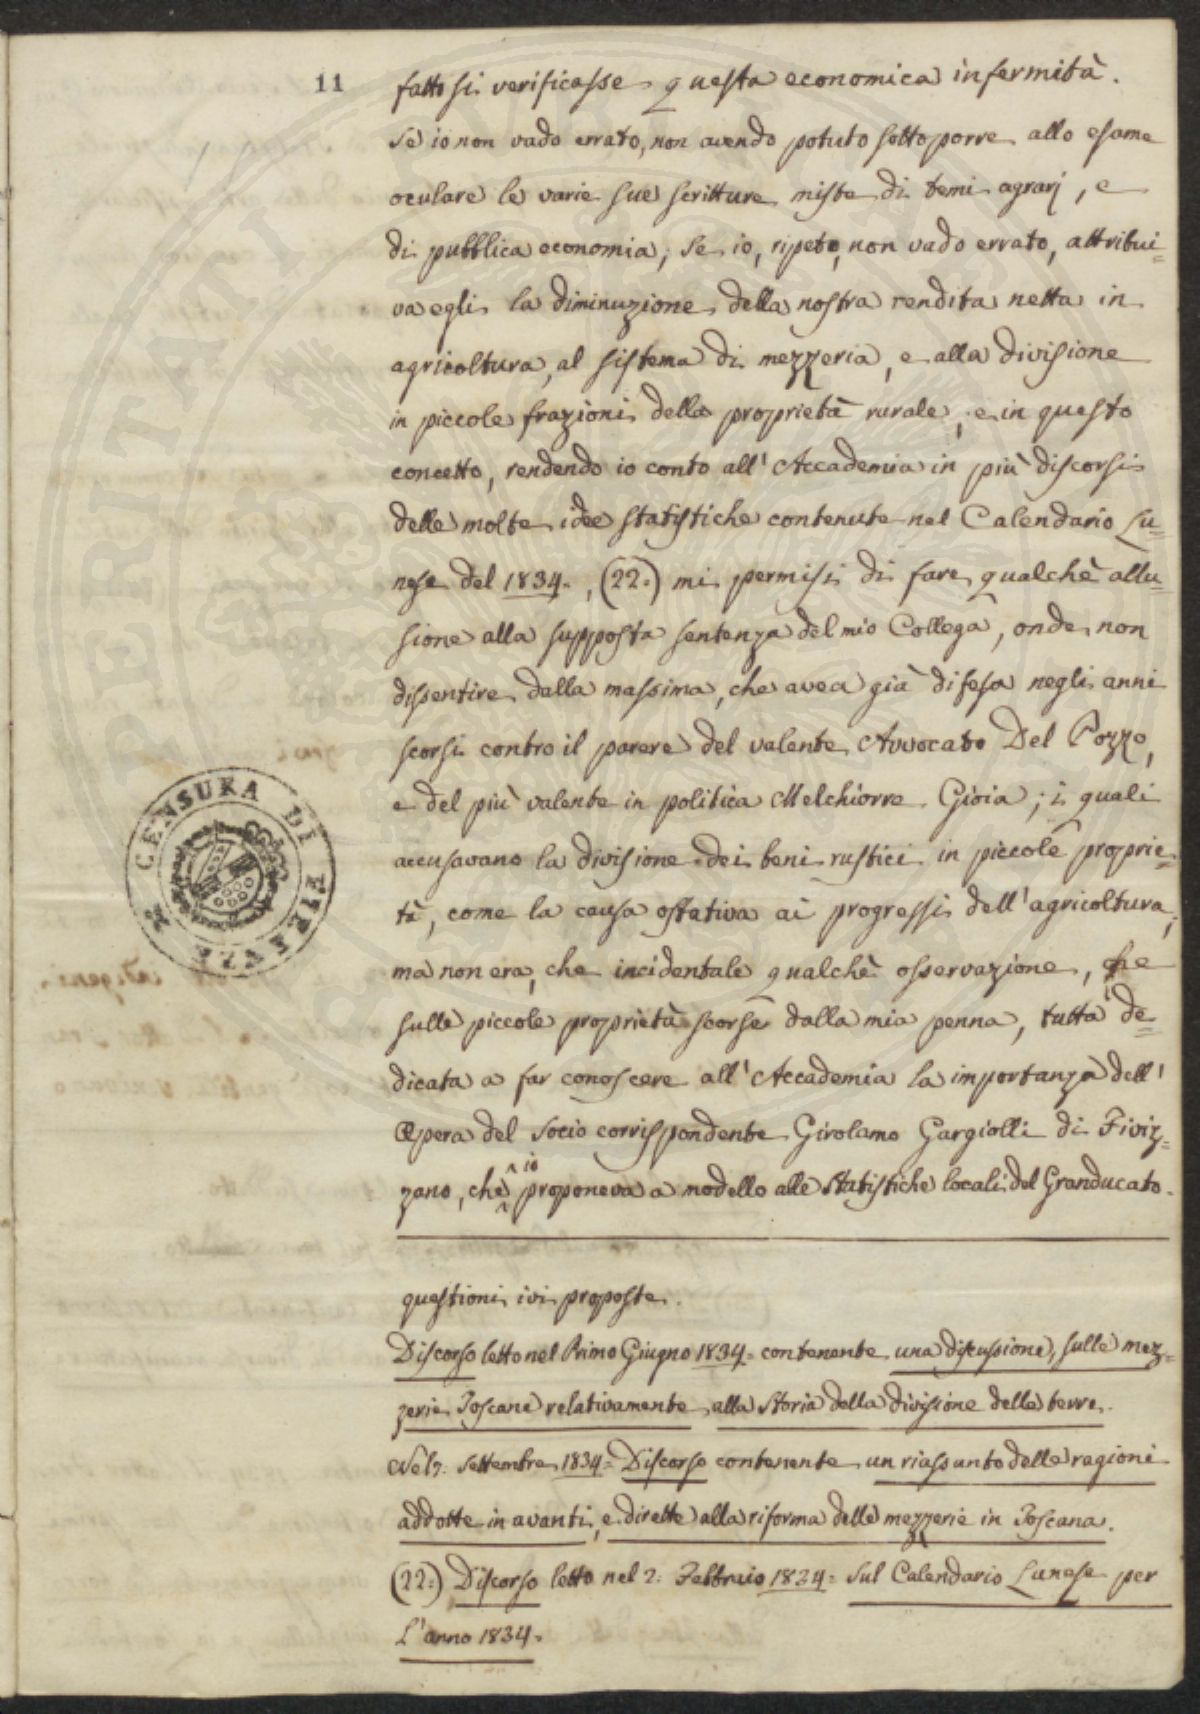 11
fatto si verificasse questa economica infermità.
Se io non vado errato, non avendo potuto sottoporre allo esame
oculare le varie sue scritture miste di temi agrarj, e
di pubblica economia; Se io, ripeto, non vado errato, attribui=
va egli la diminuzione della nostra rendita netta in
agricoltura, al sistema di mezzeria, e alla divisione
in piccole frazioni della proprietà rurale; e in questo
concetto, rendendo io conto all' Accademia in più discorsi
delle molte idee statistiche contenute nel Calendario Lu=
nese del 1834., (22.) mi permisi di fare qualche allu=
sione alla supposta sentenza del mio Collega, onde non
dissentire dalla massima, che avea già difesa negli anni
scorsi contro il parere del valente Avvocato Del Pozzo,
e del più valente in politica Melchiorre Gioia; i quali
accusavano la divisione dei beni rustici in piccole proprie=
tà, come la causa ostativa ai progressi dell' agricoltura;
ma non era, che incidentale qualche osservazione, che
sulle piccole proprietà scorse dalla mia penna, tutta de=
dicata a far conoscere all' Accademia la importanza dell'
Opera del Socio corrispondente Girolamo Gargiolli di Fiviz=
zano, che io proponeva a modello alle Statistiche locali del Granducato.
questioni ivi proposte.
Discorso letto nel Primo Giugno 1834= contenente una discussione, sulle mez=
zerie Toscane relativamente alla Storia della divisione delle terre.
Nel 7. Settembre 1834= Discorso contenente un riassunto delle ragioni
addotte in avanti, e dirette alla riforma delle mezzerie in Toscana.
(22.) Discorso letto nel 2. Febbraio 1834= sul Calendario Lunese per
L'anno 1834.
R. CENSURA DI FIRENZE
PERITATI